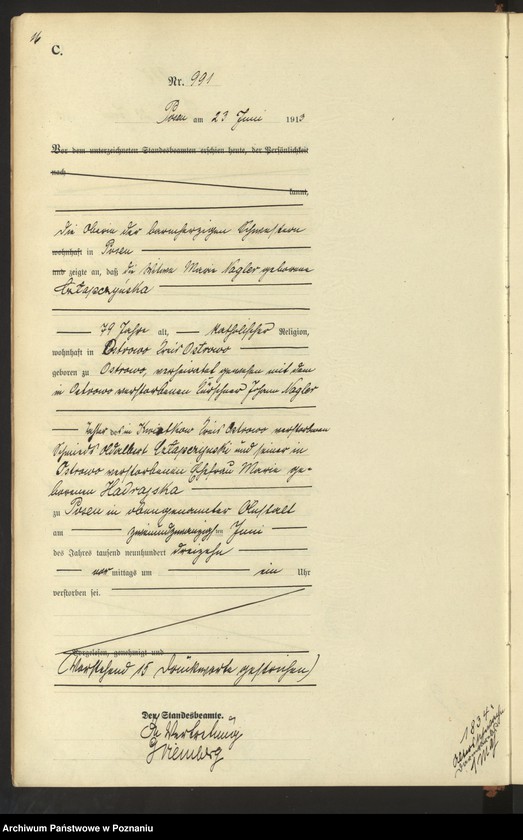 16
C.
Nr. 991
Posen am 23 Juni 1913
Vor dem unterzeichneten Standesbeamten erschien heute, der Persönlichkeit
nach
kannt,
die Oberin der barmherzigen Schwestern
wohnhaft in Posen
und zeigte an, daß die Witwe Marie Nagler geborene
79 Jahre alt, katholischer Religion,
wohnhaft in Ostrowo Kreis Ostrowo
geboren zu Ostrowo, verheiratet gewesen mit dem
in Ostrowo verstorbenen Kürschner Johann Nagler
Tochter des in Kwiatkow Kreis Ostrowo verstorbenen
Schmieds und seiner in
Ostrowo verstorbenen Ehefrau Marie ge-
borenen Hadrajska
zu Posen in obengenannter Anstalt
am zweiundzwanzigsten Juni
des Jahres tausend neunhundert dreizehn
vormittags um ein Uhr
verstorben sei.
Vorgelesen, genehmigt und
(Vorstehend 15 Druckworte gestrichen)
Der Standesbeamte.
In Vertretung
1834